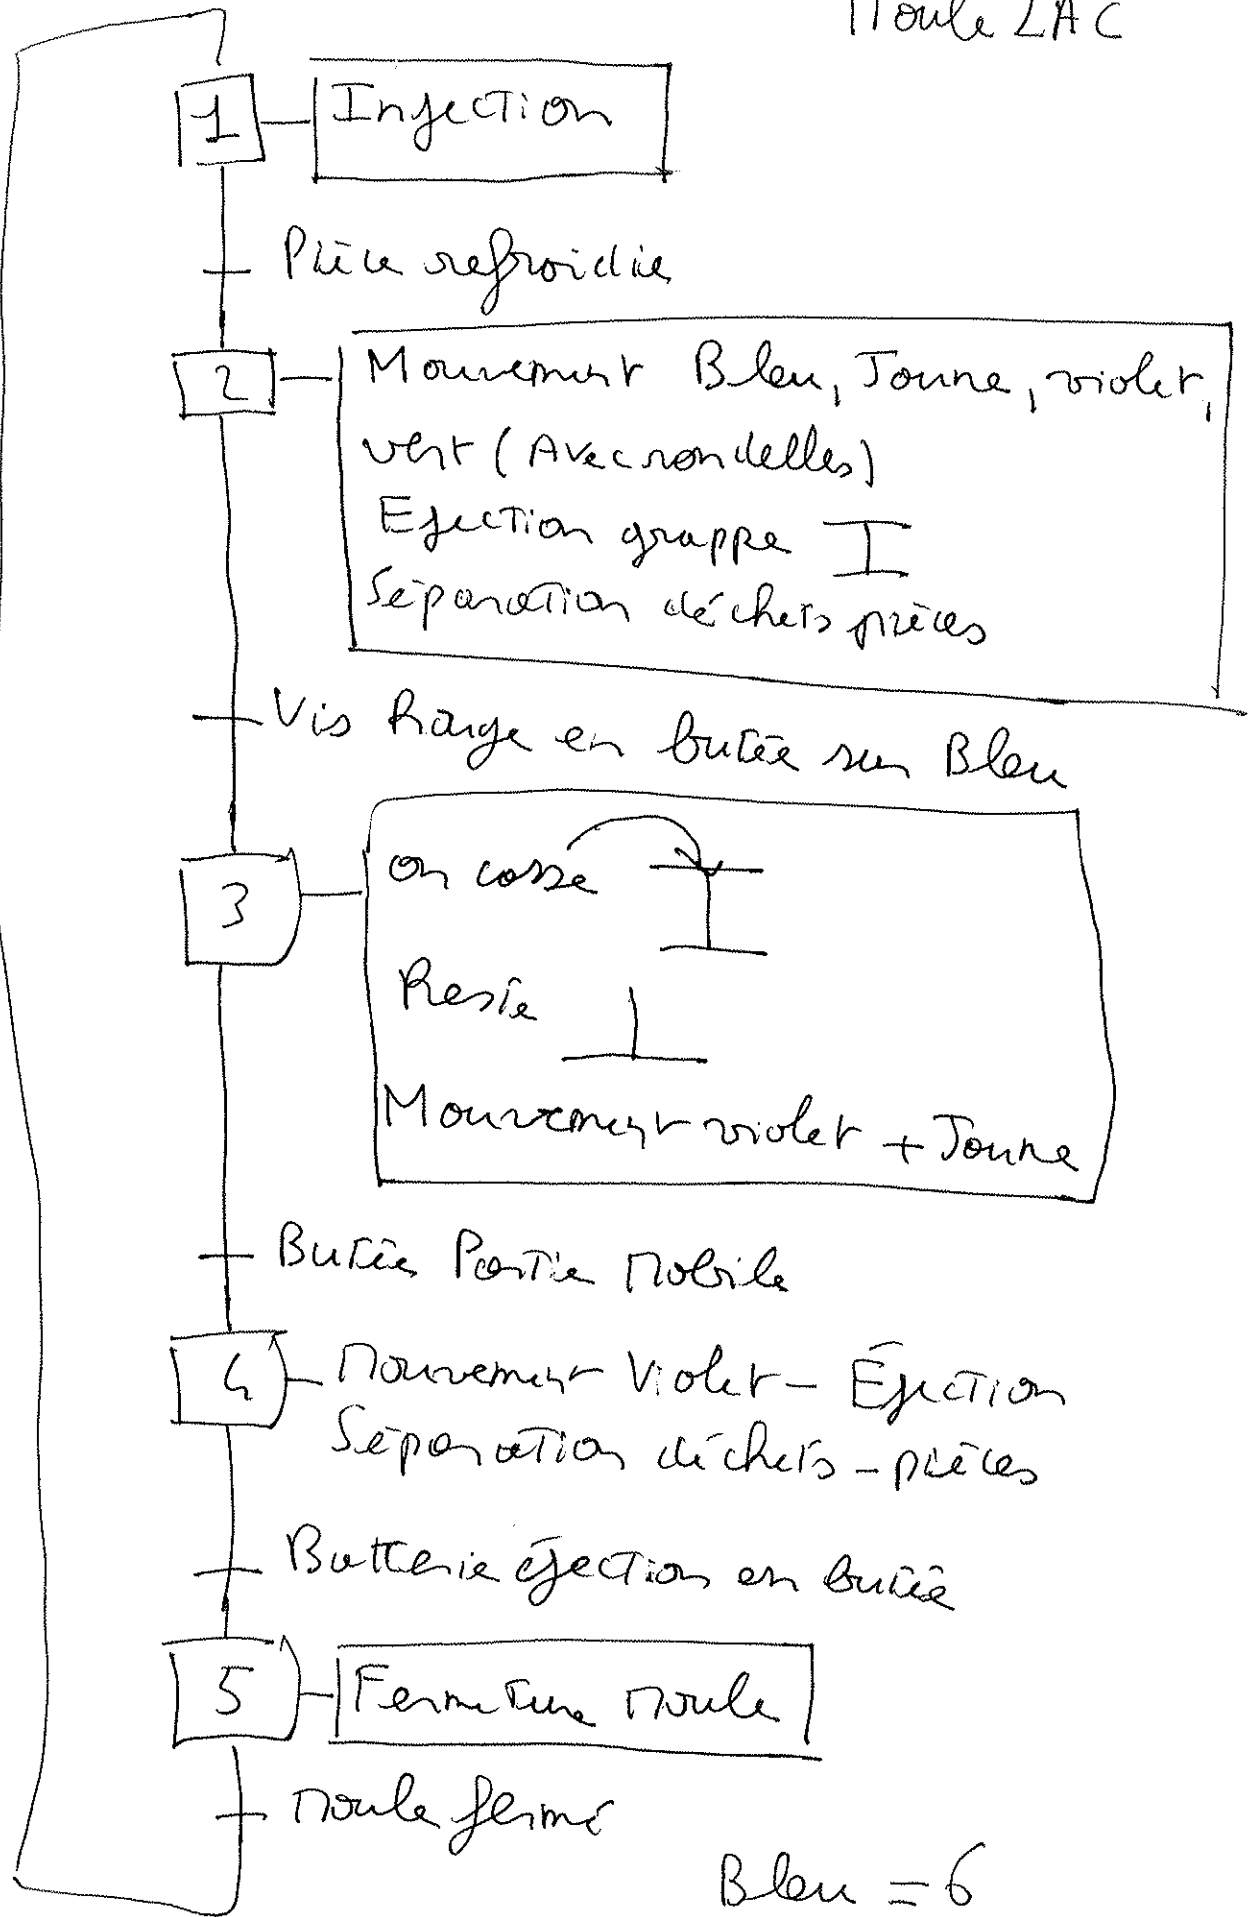 Moule LAC
1 Injection
Pièce refroidie
2 Mouvement Bleu, Jaune, violet,
vert (Avec rondelles)
Ejection grappe
Séparation déchets pièces
Vis Rouge en butée sur Bleu
3 on casse
Reste
Mouvement violet + Jaune
Butée Partie Mobile
4 Mouvement Violet - Éjection
Séparation déchets - pièces
Batterie éjection en butée
5 Fermeture moule
moule fermé
Bleu = 6